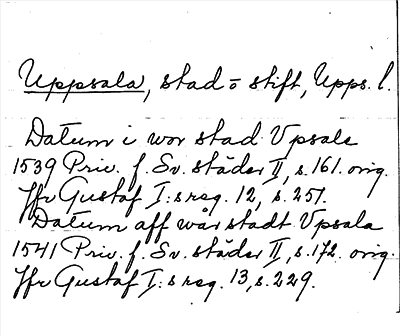 Uppsala, stad o stift, Upps. l.
Datum i wor stad Vpsale
1539 Priv. f. Sv. städer II, s. 161. orig.
Jfr Gustaf I:s reg. 12, s. 251.
Datum aff wår stadt Vpsala
1541 Priv. f. Sv. städer II, s. 172. orig.
Jfr Gustaf I:s reg. 13, s. 229.